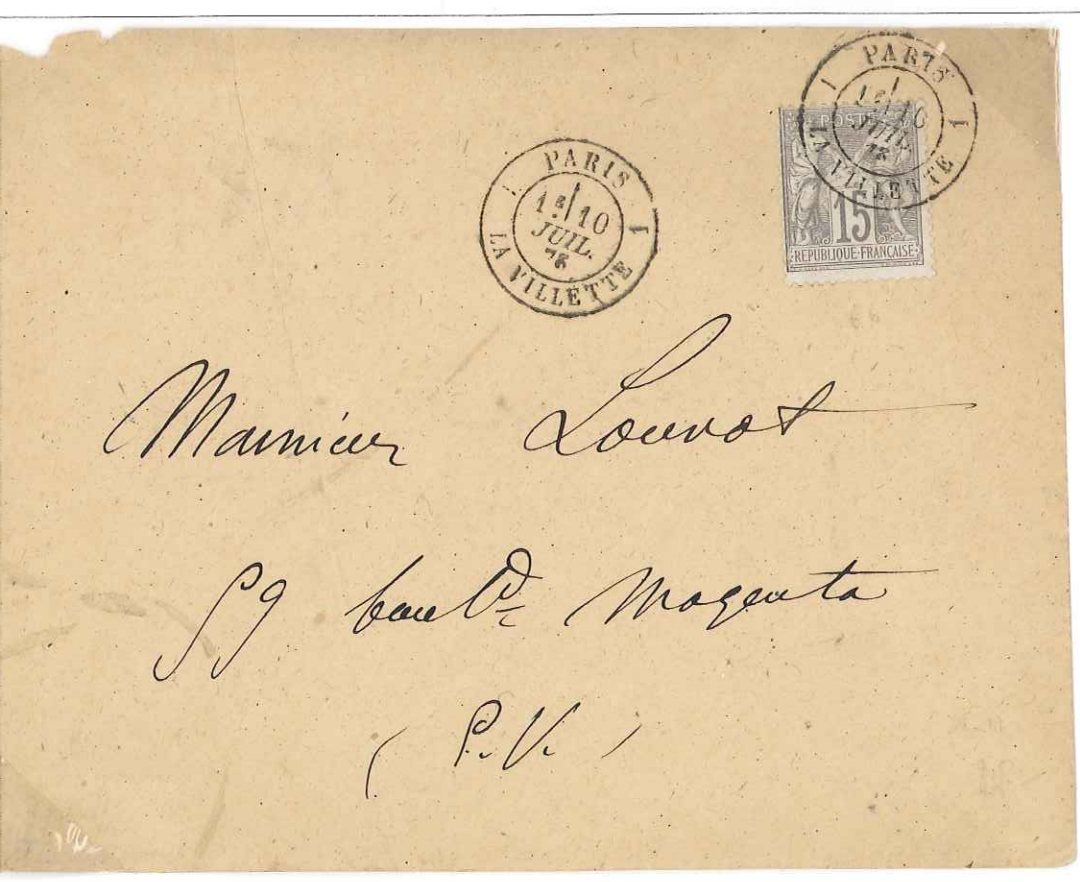 PARIS
1 1
1E/ 10
JUIL.
LA VILLETTE
PARIS
1 1
1E/ 10
JUIL.
LA VILLETTE
POSTES
15
REPUBLIQUE FRANÇAISE
Monsieur Louvot
59 boulD Magenta
(P.V.)